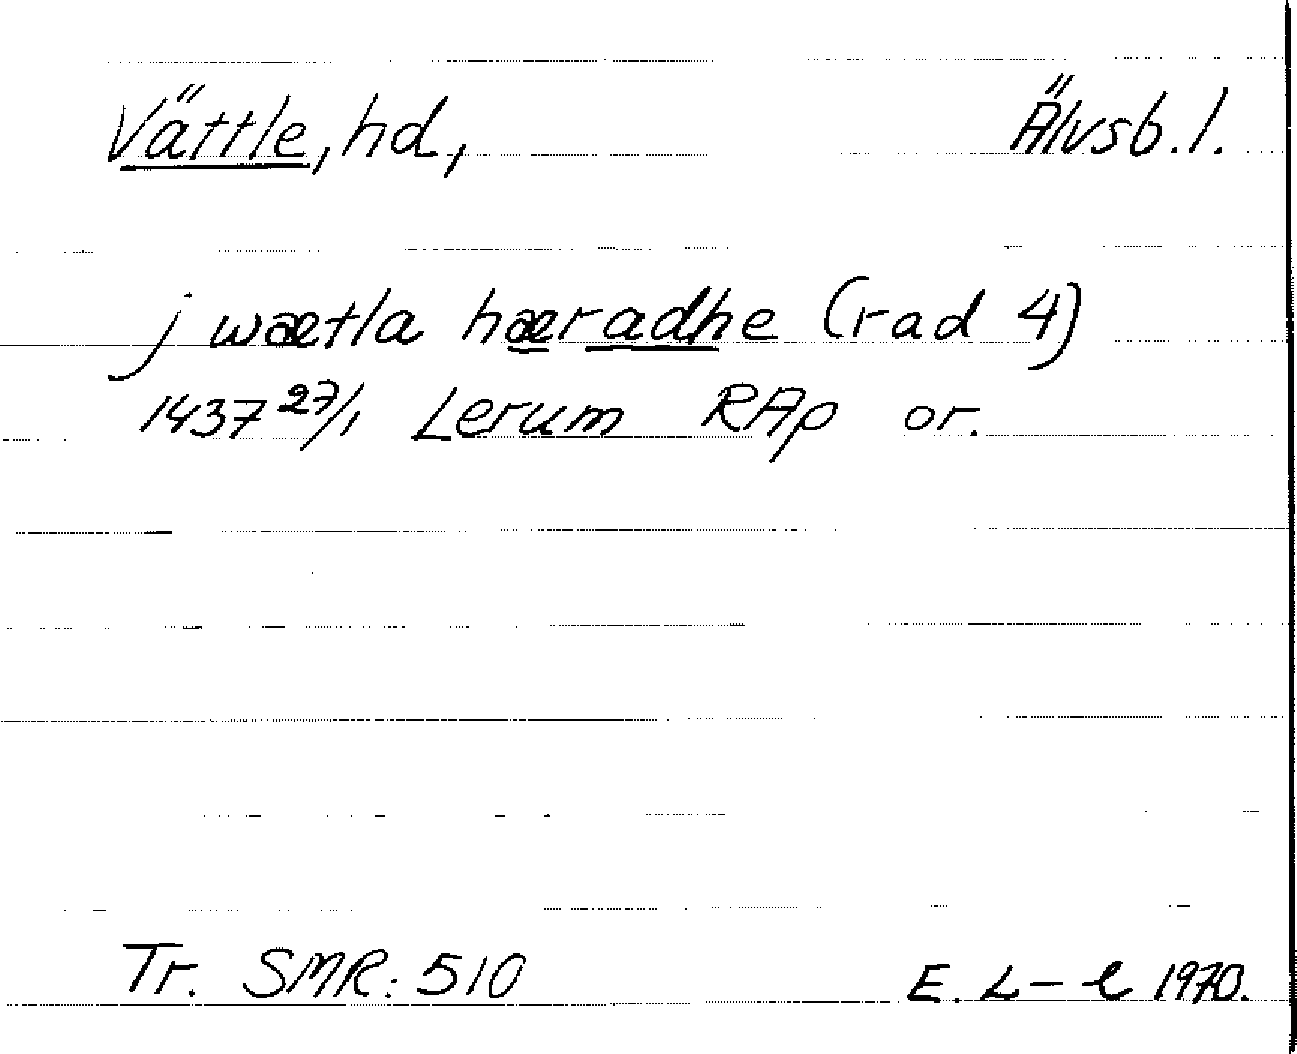 Vättle, hd,	Älvsb. l.
j wætla hæradhe (rad 4)
1437 27/1 Lerum RAp or.
Tr. SMR: 510	E. L-l 1970.